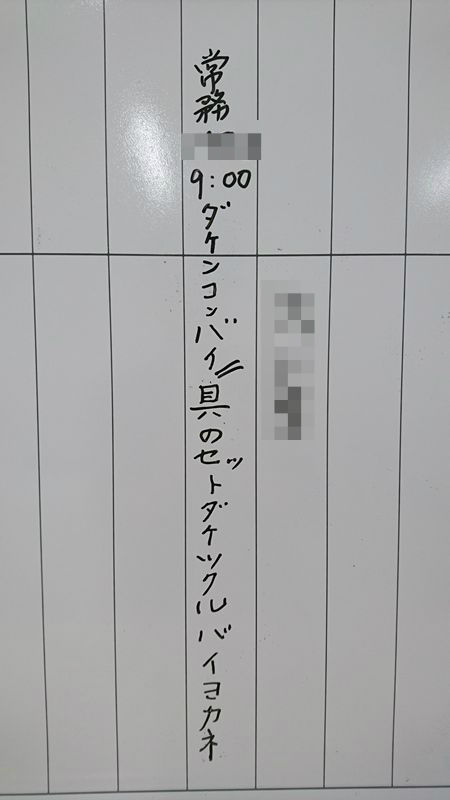 常務 9:00ダケンコンバイ〃具のセットダケツクルバイヨカネ